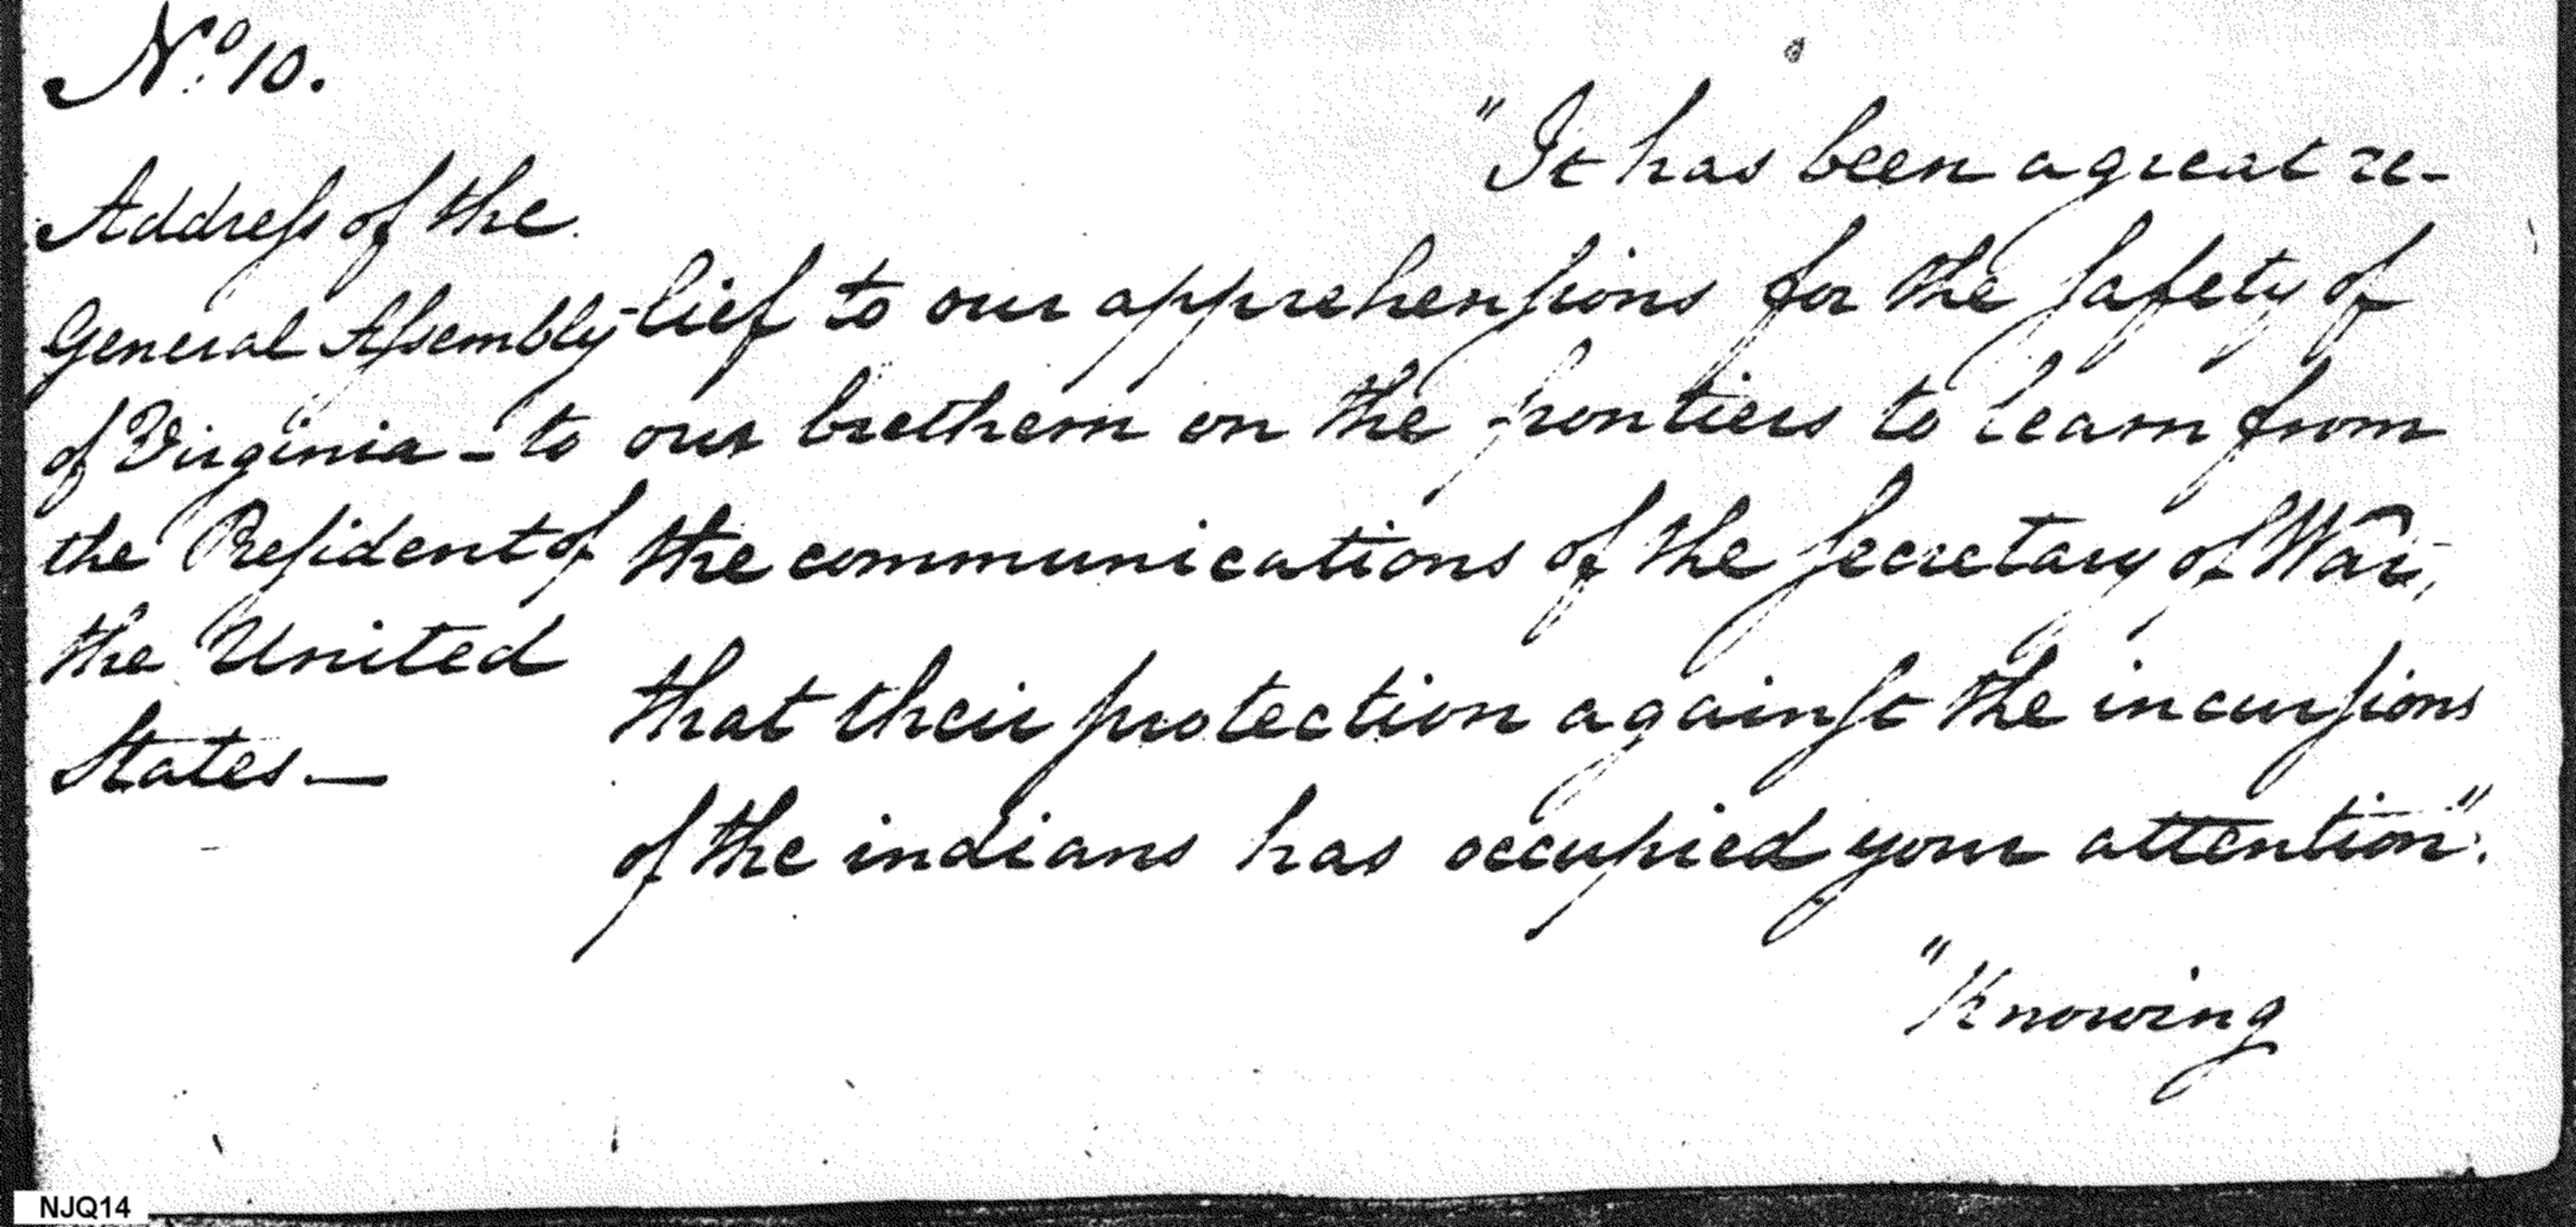 No. 10.
Addreſs of the
General Aſsembly
of Virginia - to
the Preſident of
the United
States —
"It has been a great re-
lief to our apprehenſions for the ſafety of
our brethern on the frontiers to learn from
the communications of the ſecretary of War,
that their protection againſt the incurſions
of the indians has occupied your attention".
"Knowing
NJQ14